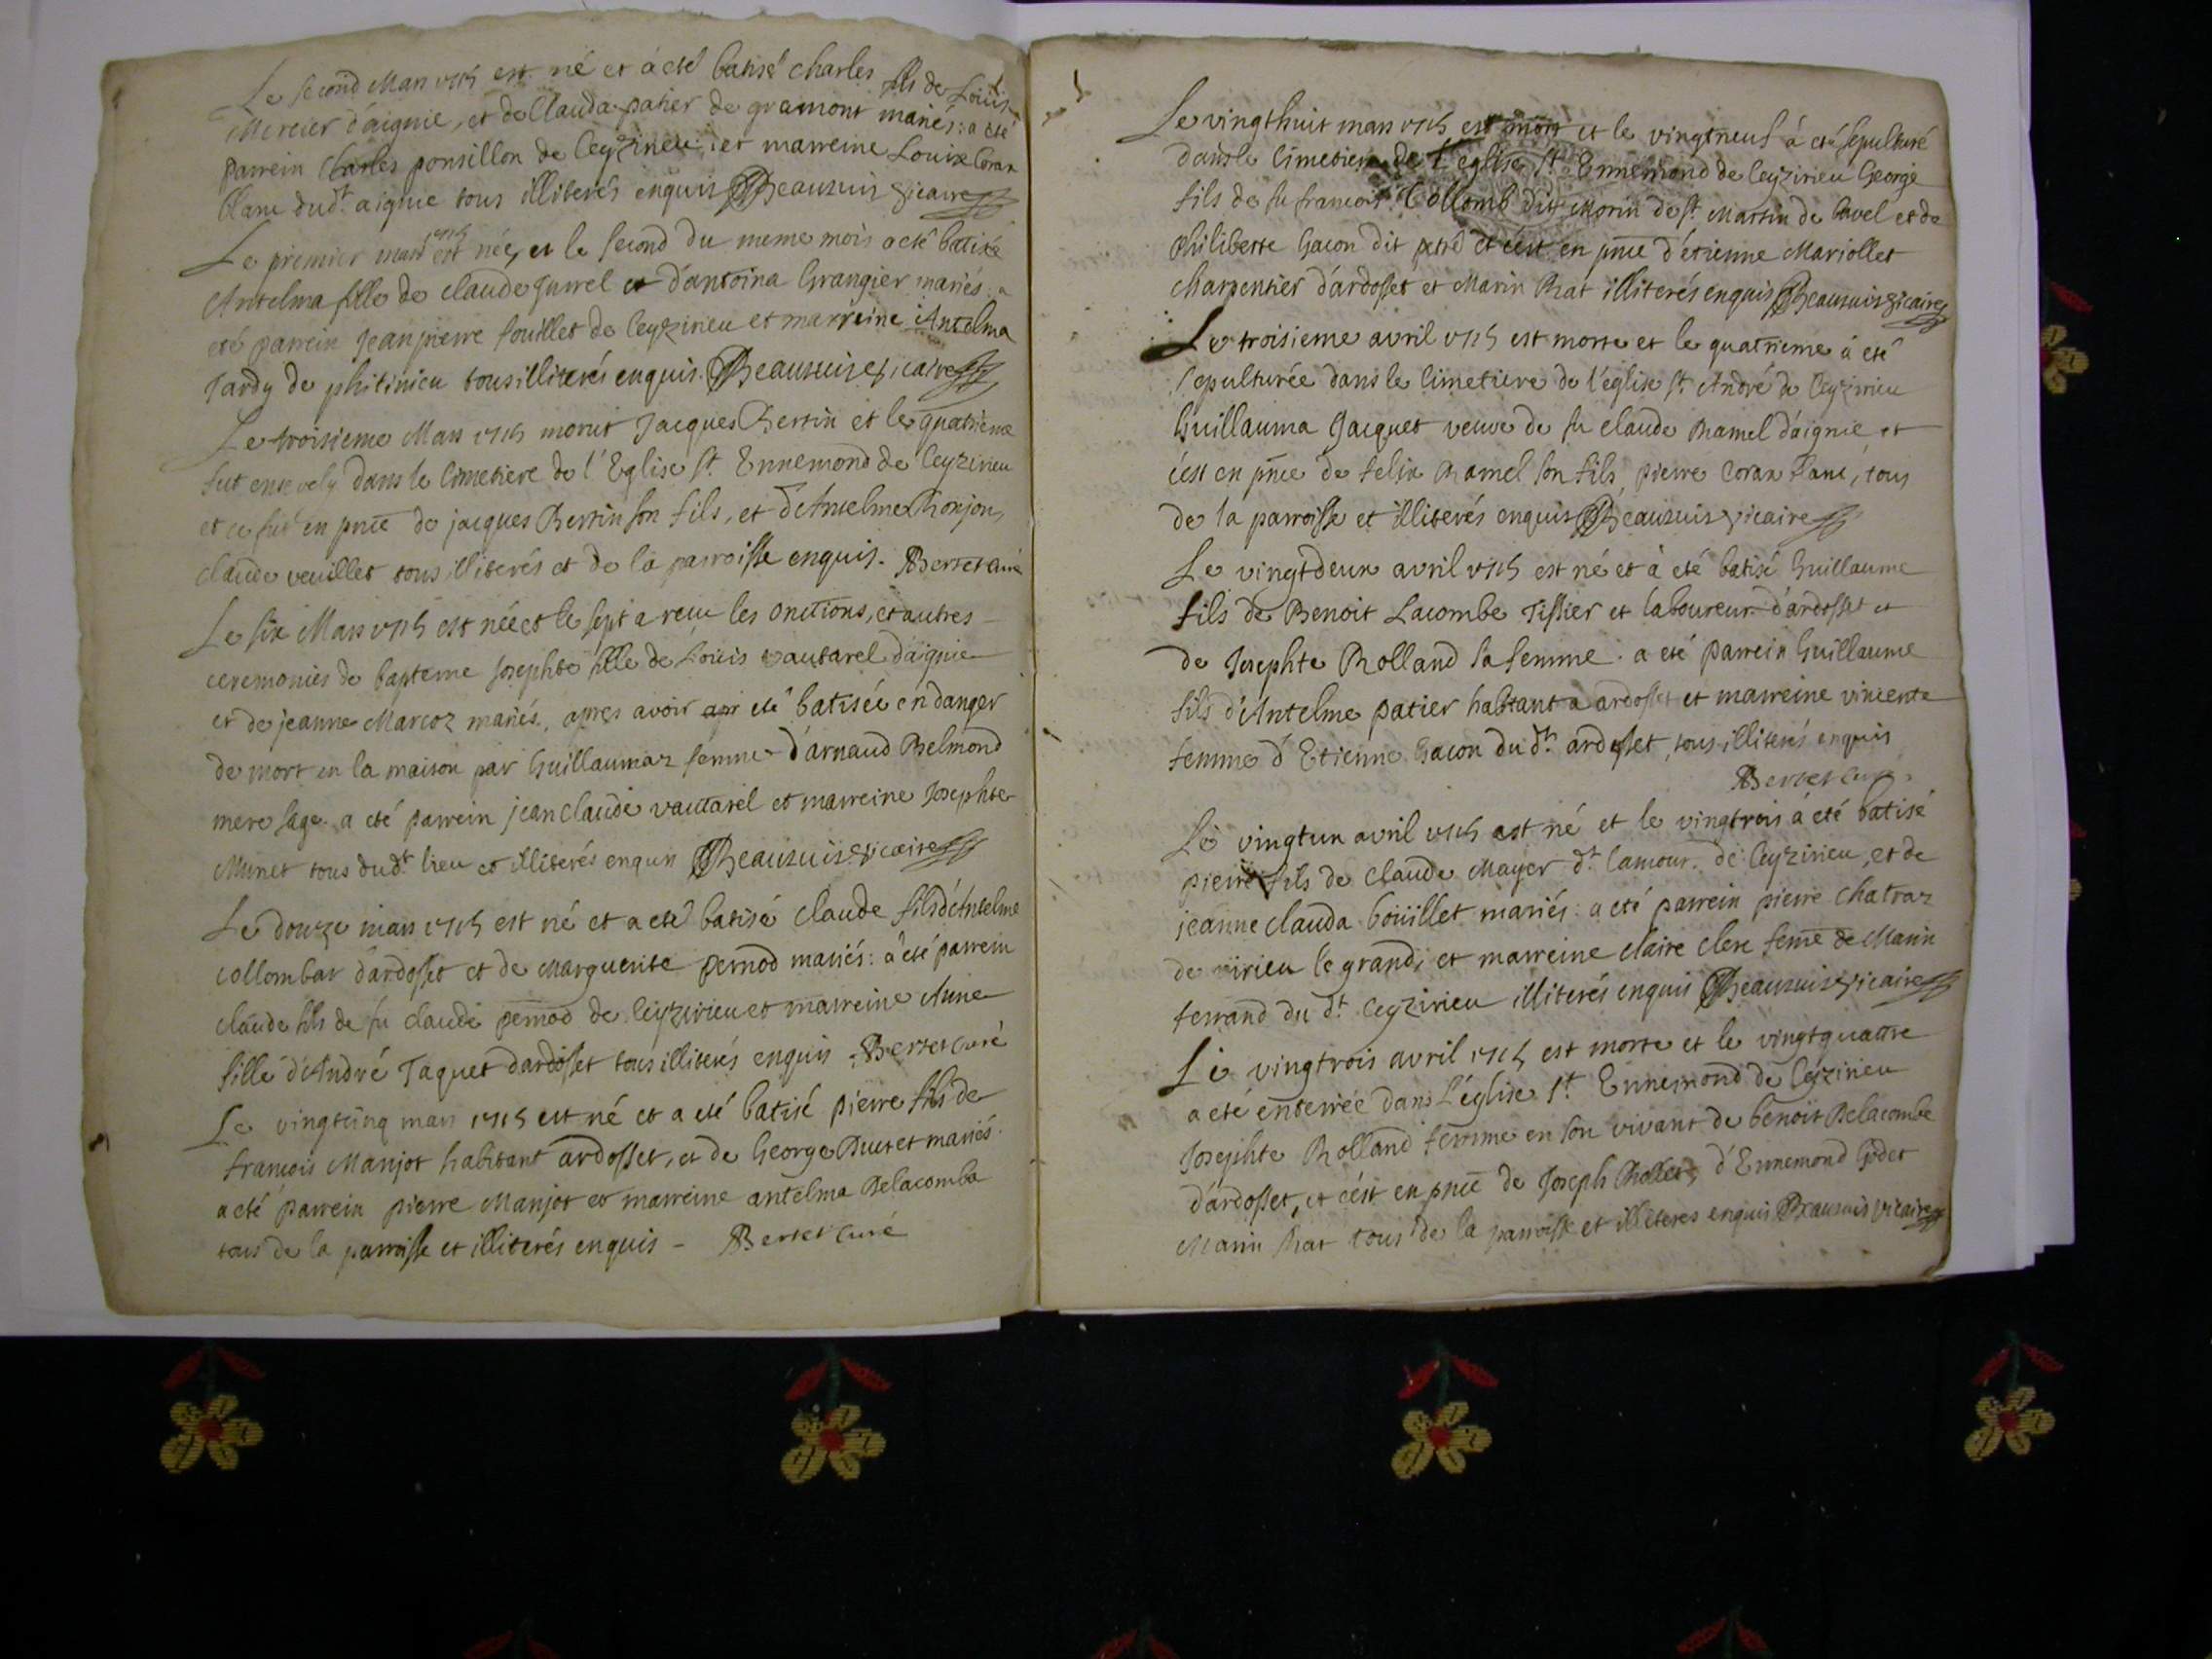 Le second Mars 1715 est né et à eté batisé charles fils de Loüis
Mercier d'aignie, et de Clauda patier de gramont mariés: a eté
parrein Charles ponsillon de Ceyzirieu; et marreine Louise Coran
blanc dud.t aignie tous illiterés enquis Beauzuis vicaire
Le premier mars 1715 est née, et le second du meme mois a eté batisée
Antelma fille de claude Jurrel et d'antoina Grangier mariés a
eté parrein Jean pierre fouillet de Ceyzirieu et marreine Antelma
Jardy de phitinieu tous illiterés enquis. Beauzuis vicaire
Le troisieme Mars 1715 morut Jacques Bertin et le quatrieme
fut ensevely dans le Cimetiere de l'Eglise St. Ennemond de Ceyzirieu
et ce fut en pnce de jacques Bertin son fils, et d'Antelme Bonjon,
claude veuillet tous illiterés et de la parroisse enquis. Bertet curé
Le six Mars 1715 est née et le sept a receu les onctions, et autres
ceremonies de bapteme Josephte fille de Loüis vautarel d'aignie
et de jeanne Marcoz mariés, apres avoir eté batisée en danger
de mort en la maison par Guillaumaz femme d'arnaud Belmond
mere sage a eté parrein jean claude vautarel et marreine Josephte
Munet tous dud.t lieu et illiterés enquis Beauzuis vicaire
Le douze mars 1715 est né et a eté batisé Claude fils d'Antelme
collombar d'ardosset et de Marguerite pernod mariés: a eté parrein
claude fils de fu claude pernod de Ceyzirieu et marreine Anne
fille d'André Taquet d'ardosset tous illiterés enquis. Bertet curé
Le vingtcinq mars 1715 est né et a eté batisé pierre fils de
francois Manjot habitant ardosset, et de George Ducret mariés.
a eté parrein pierre Manjot et marreine antelma Delacombe
tous de la parroisse et illiterés enquis - Bertet curé
Le vingthuit mars 1715 est mort et le vingtneuf à eté sepulturé
dans le Cimetiere de l'eglise St. Ennemond de Ceyzirieu George
fils de fu francois Collomb dit Morin de St. Martin de bavel et de
philiberte Gacon dit et c'est en pnce d'étienne Mariollet
charpentier d'ardosset et Marin Rat illiterés enquis Beauzuis vicaire
Le troisieme avril 1715 est morte et le quatrieme à eté
sepulturée dans le cimetiere de l'eglise St. André de Ceyzirieu
Guillauma Jacquet veuve de fu claude Ramel d'aignie et
c'est en pnce de felix Ramel son fils, pierre Coran blanc, tous
de la parroisse et illiterés enquis Beauzuis vicaire
Le vingtdeux avril 1715 est né et à eté batisé Guillaume
fils de Benoit Lacombe Tissier et laboureur d'ardosset et
de Josephte Rolland sa femme. a eté parrein Guillaume
fils d'Antelme patier habitant a ardosset et marreine vincente
femme d'Etienne Gacon du dt. ardosset, tous illiterés enquis
Bertet curé.
Le vingtun avril 1715 est né et le vingtrois à eté batisé
pierre fils de claude Mayer dt. lamour de Ceyzirieu, et de
jeanne clauda boüillet mariés: a eté parrein pierre Chatraz
de virieu le grand, et marreine claire clerc feme de Marin
ferrand du dt. Ceyzirieu illiterés enquis Beauzuis vicaire
Le vingtrois avril 1715 est morte et le vingtquattre
a eté enterrée dans l'église St. Ennemond de Ceyzirieu
Josephte Rolland femme en son vivant de benoit Delacombe
d'ardosset, et c'est en pnce de Joseph Rollet, d'Ennemond Godet
Marin Rat tous de la parroisse et illiteres enquis Beauzuis vicaire